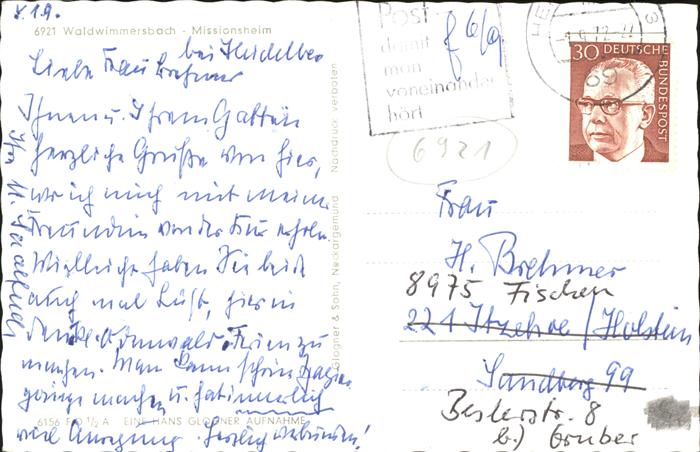 6921 Waldwimmersbach - Missionsheim
bei Heidelber
Liebe Frau Brehmer
Ihnen u. Ihrem Gatten
herzliche Grüße von hier,
wo ich mich mit meiner
Freundin von der Kur erhole.
Vielleicht haben Sie beide
auch mal Lust, hier in
Odenwald Ferien zu
machen. Man kann schöne
gänge machen u. hat innerlich
viel Anregung. Herzlich verbunden!
Ihre
6156 F D 1/2 A EINE HANS GLOGNER AUFNAHME
Glogner & Sohn, Neckargemünd Nachdr. verboten
Post
damit
man
voneinander
hört
6/9
69
30 DEUTSCHE
BUNDESPOST
6921
Frau
H. Brehmer
8975 Fischen
221 Itzehoe / Holstein
Sandberg 99
Beslerstr. 8
b) Gruber